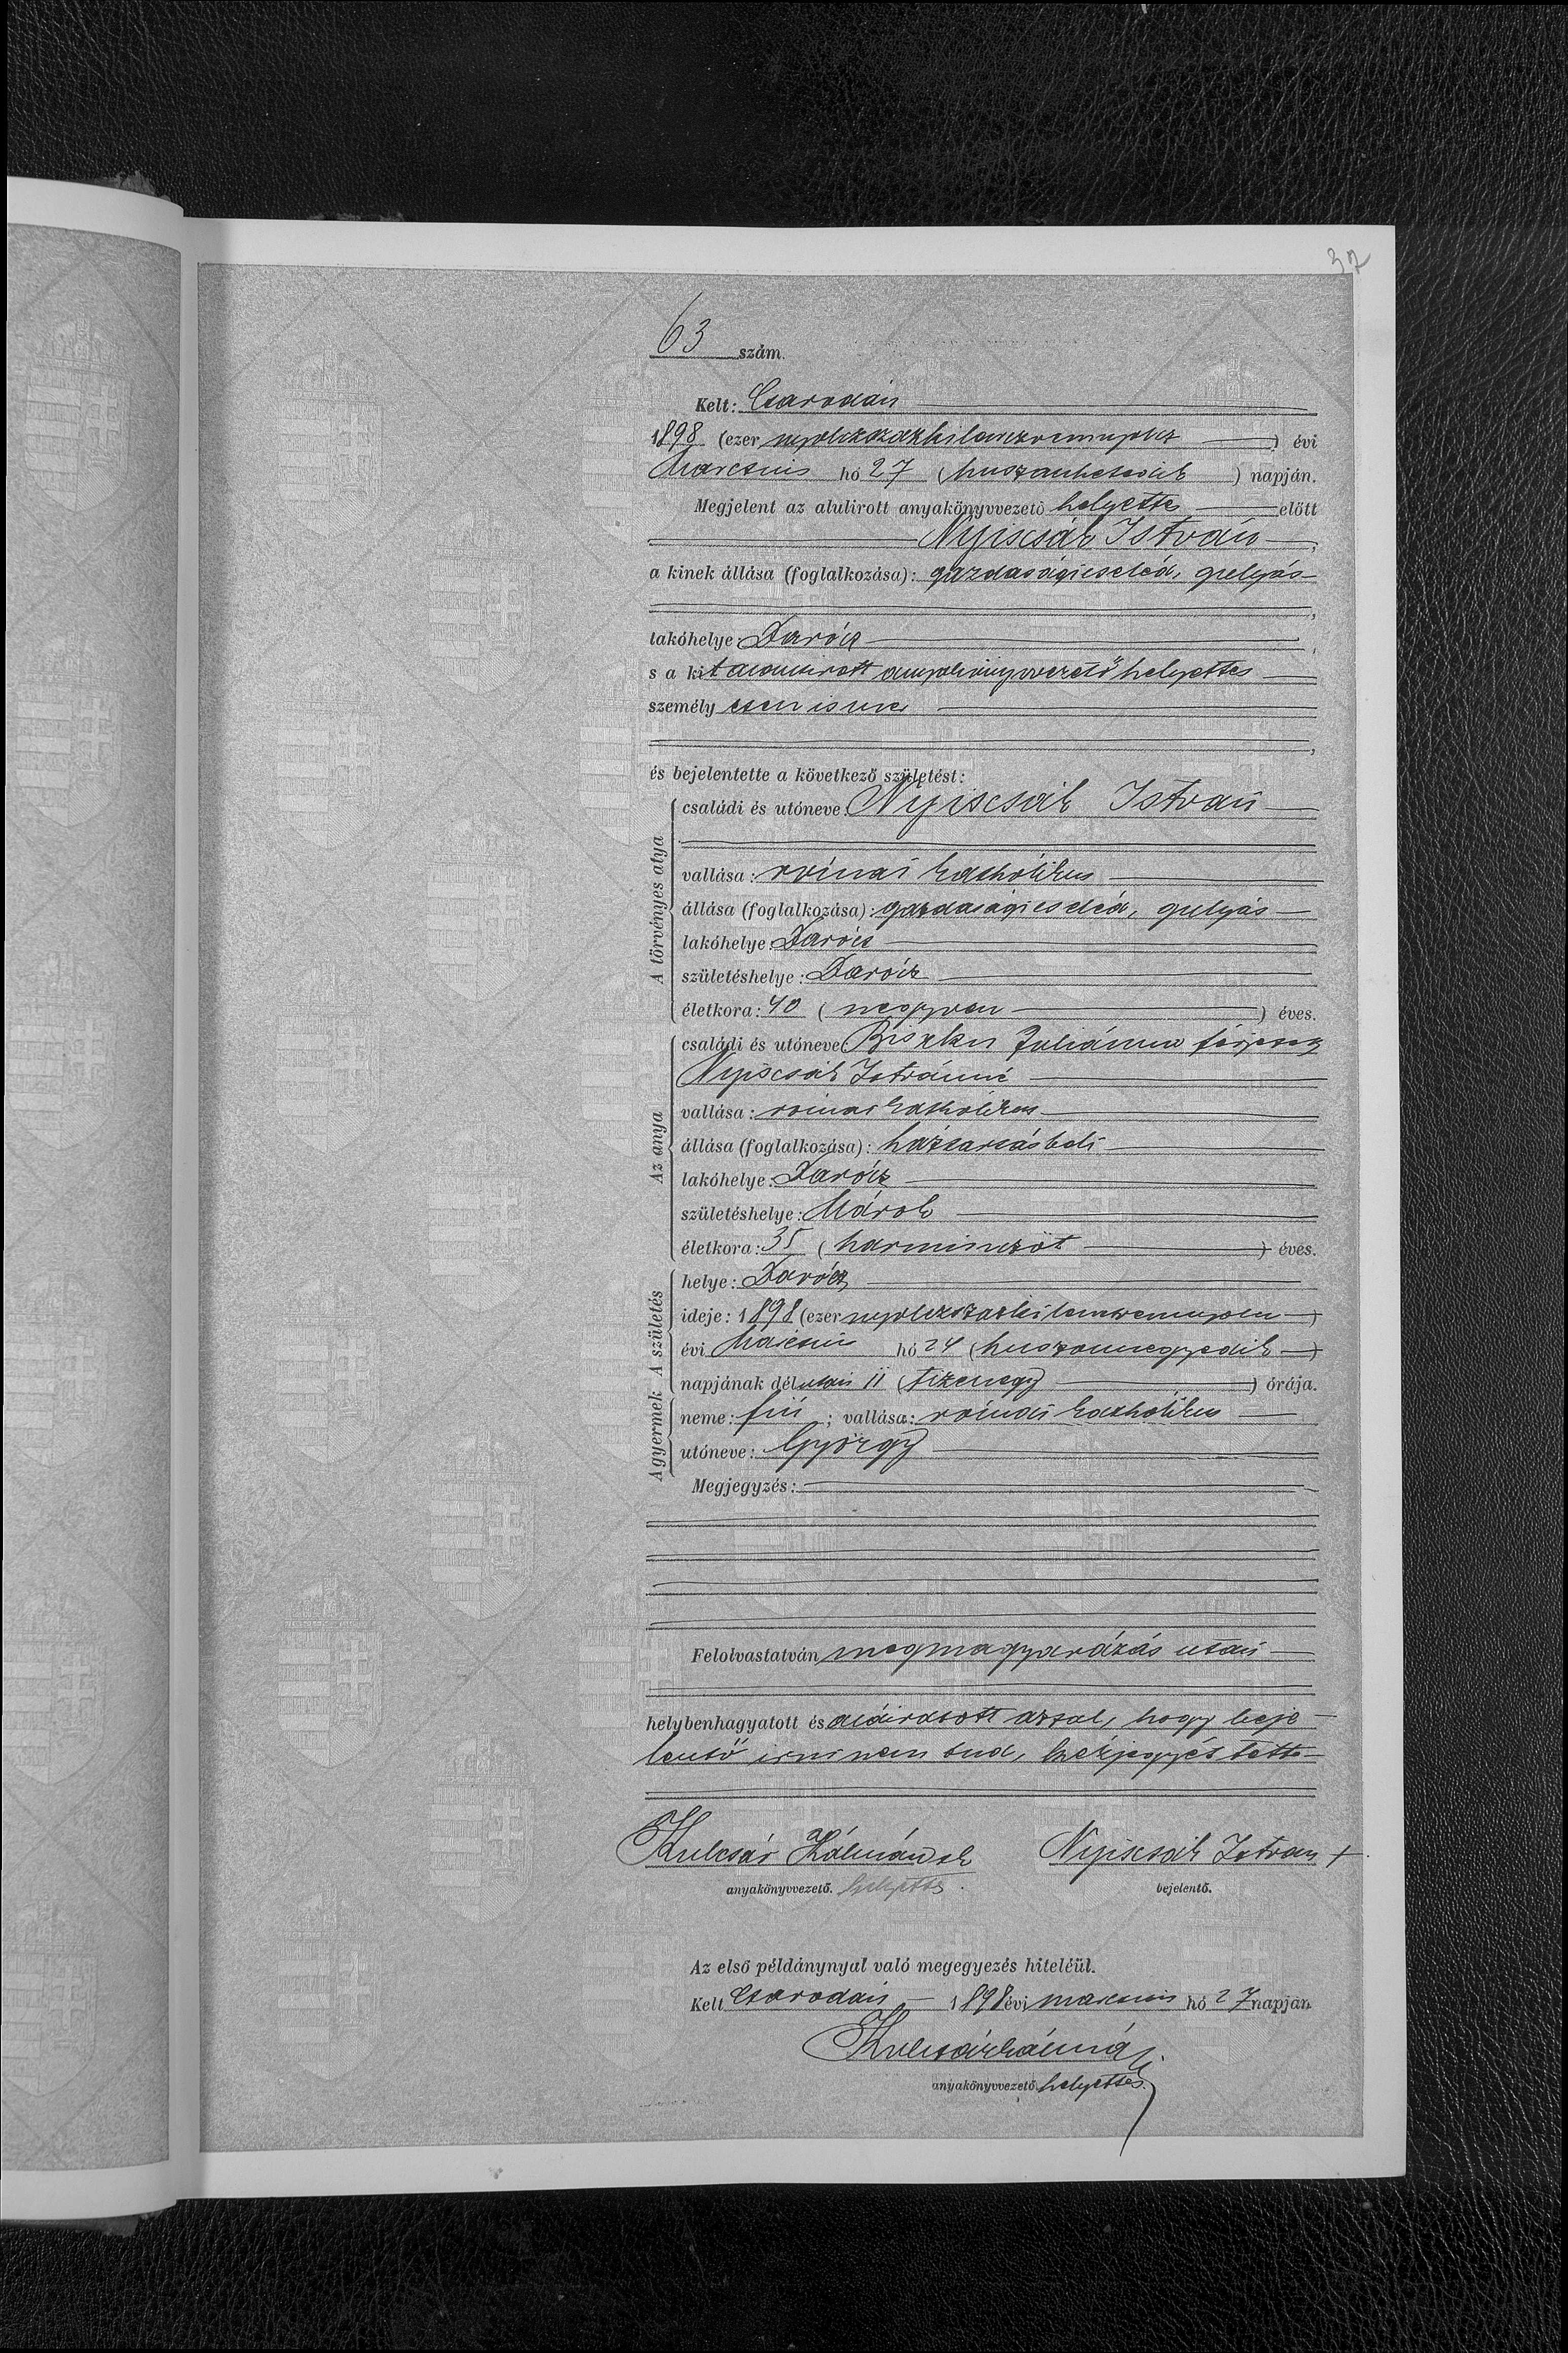 37
63 szám.
Kelt: Csarodán
1898 (ezer nyolczszázkilenczvennyolcz) évi
Március hó 27 (huszonhetedik) napján.
Megjelent az alulirott anyakönyvvezető helyettes előtt
Nyiscsák István,
a kinek állása (foglalkozása): gazdasági cseléd, gulyás
lakóhelye: Darócz,
s a kit alulirott anyakönyvvezető helyettes
személyesen ismer,
és bejelentette a következő születést:
A törvényes atya
családi és utóneve: Nyiscsák István
vallása: római katholikus
állása (foglalkozása): gazdasági cseléd, gulyás
lakóhelye: Darócz
születéshelye: Darócz
életkora: 40 (negyven) éves.
Az anya
családi és utóneve: Biszku Juliánna férjezett
Nyiscsák Istvánné
vallása: római katholikus
állása (foglalkozása): háztartásbeli
lakóhelye: Darócz
születéshelye: Márok
életkora: 35 (harminczöt) éves.
A születés
helye: Darócz
ideje: 1898 (ezer nyolczszázkilenczvennyolcz)
évi Március hó 24 (huszonnegyedik)
napjának délután 11 (tizenegy) órája.
A gyermek
neme: fiú; vallása: római katholikus
utóneve: György
Megjegyzés:
Felolvastatván megmagyarázás után
helybenhagyatott és aláiratott azzal, hogy beje
lentő irni nem tud, kézjegyét tette
Kulcsár Kálmán sk Nyiscsák István +
anyakönyvvezető. helyettes. bejelentő.
Az első példánynyal való megegyezés hiteléül.
Kelt Csarodán 1898 évi március hó 27 napján
Kulcsár Kálmán
anyakönyvvezető. helyettes.